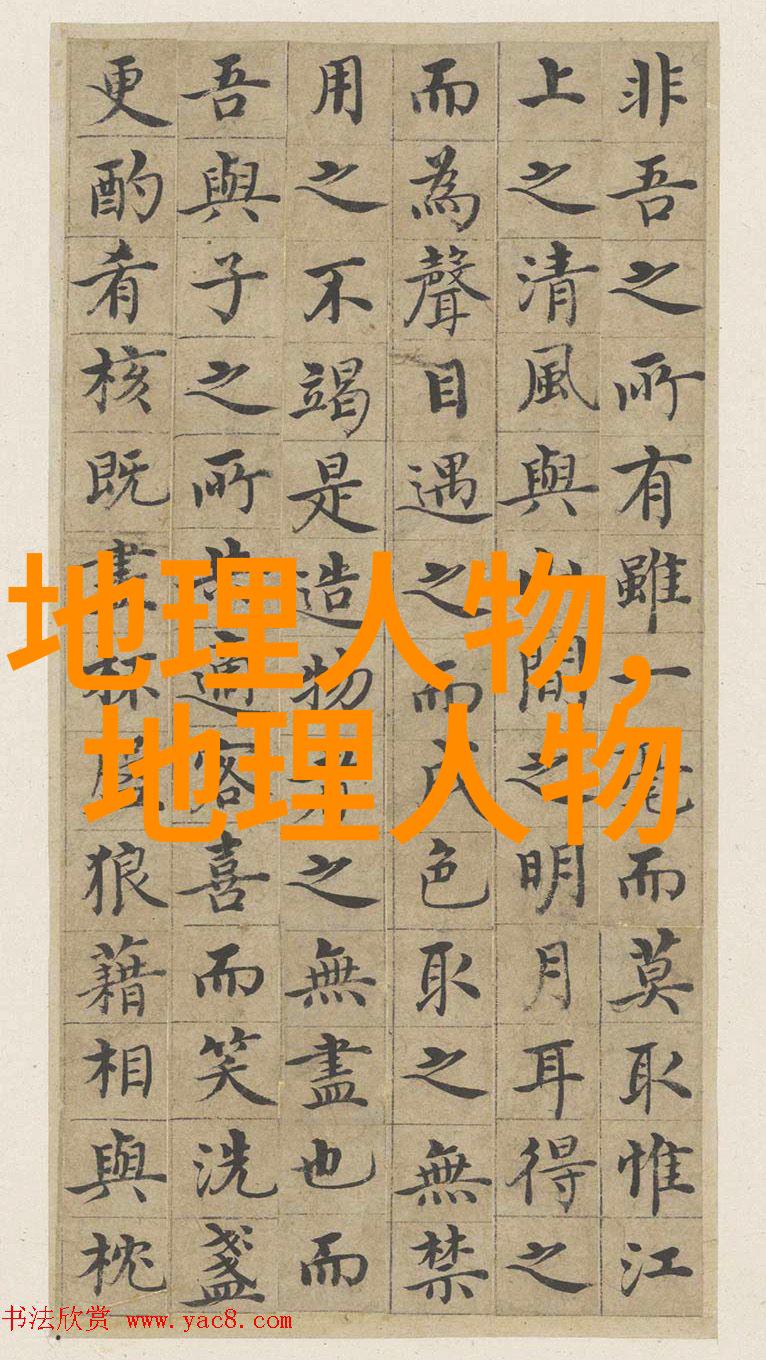 非吾之所有雖一毫而莫取惟江
上之清風與山間之明月耳得之
而為聲目遇之而成色取之無禁
用之不竭是造物者之無盡也而
吾與子之所共適客喜而笑洗盞
更酌肴核既盡杯盤狼藉相與枕
地理人物,
地理人物
书法欣赏 www.yac8.com